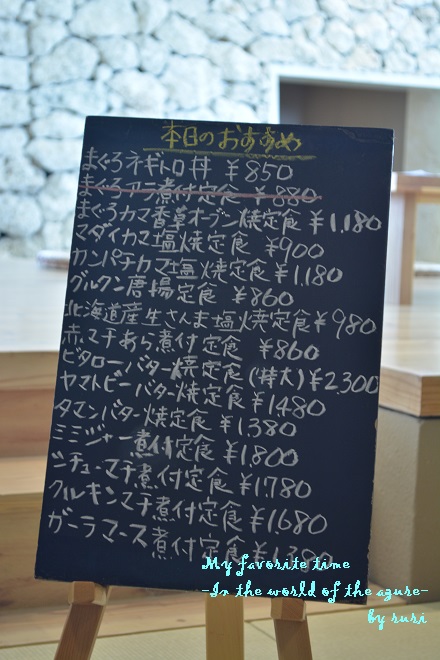 本日のおすすめ
まぐろネギトロ丼 ¥850
まぐろアラ煮付定食 ¥880
まぐろカマ香草オーブン焼定食 ¥1,180
マダイカマ塩焼定食 ¥900
カンパチカマ塩焼定食 ¥1,180
グルクン唐揚定食 ¥860
北海道産生さんま塩焼定食 ¥980
赤マチあら煮付定食 ¥860
ビタローバター焼定食(特大) ¥2,300
ヤマトビーバター焼定食 ¥1480
タマンバター焼定食 ¥1.380
ミミジャー煮付定食 ¥1,800
シチューマチ煮付定食 ¥1.780
クルキンマチ煮付定食 ¥1680
ガーラマース煮付定食
My favorite time
-In the world of the azure-
by ruri